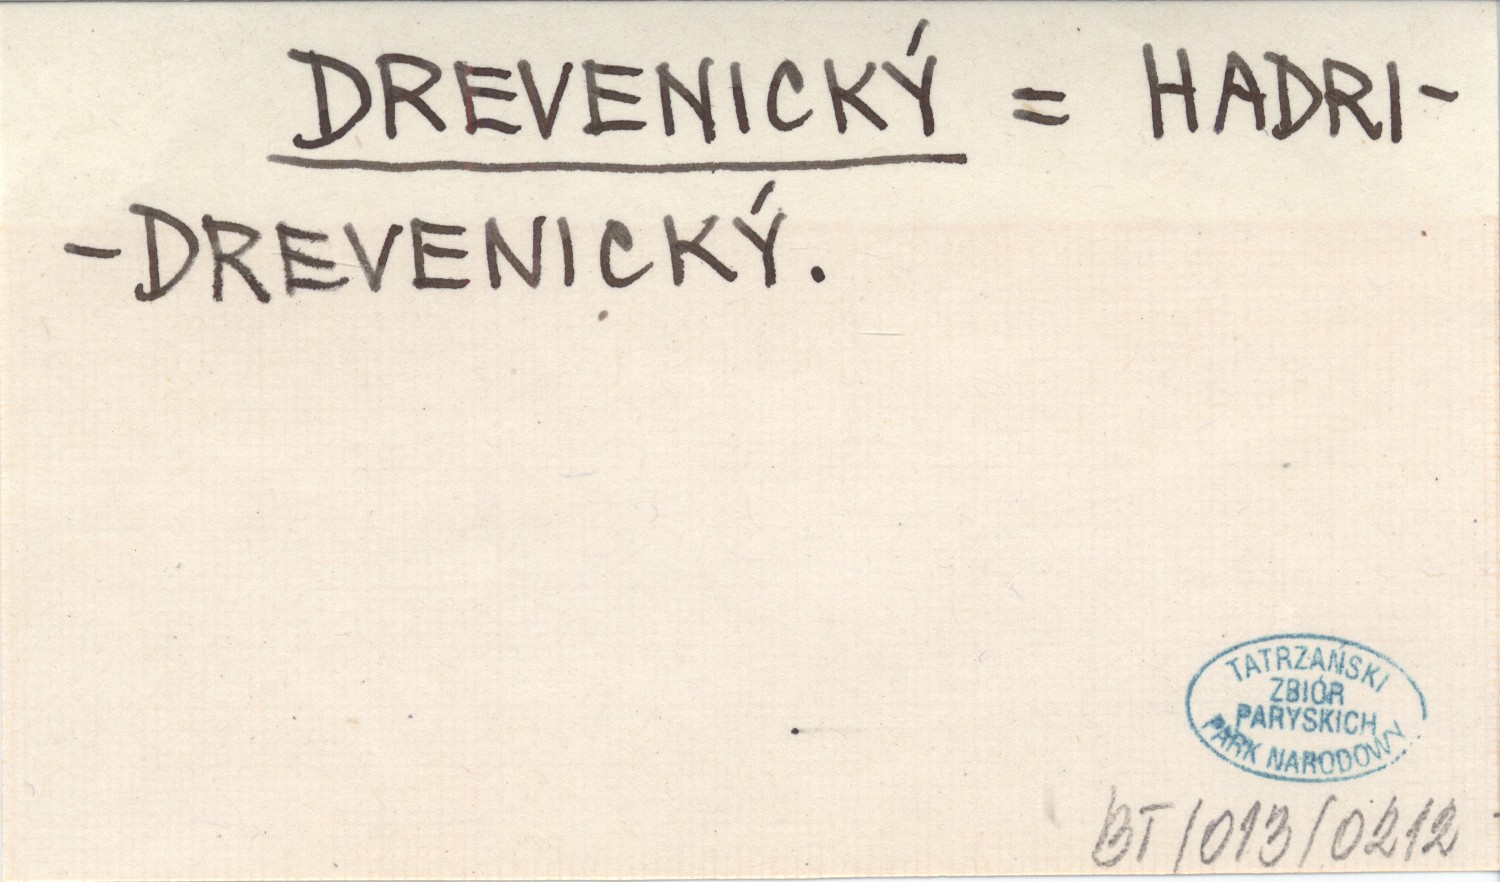 DREVENICKÝ = HADRI-
-DREVENICKÝ.
TATRZAŃSKI
ZBIÓR
PARYSKICH
PARK NARODOWY
BT/013/0212